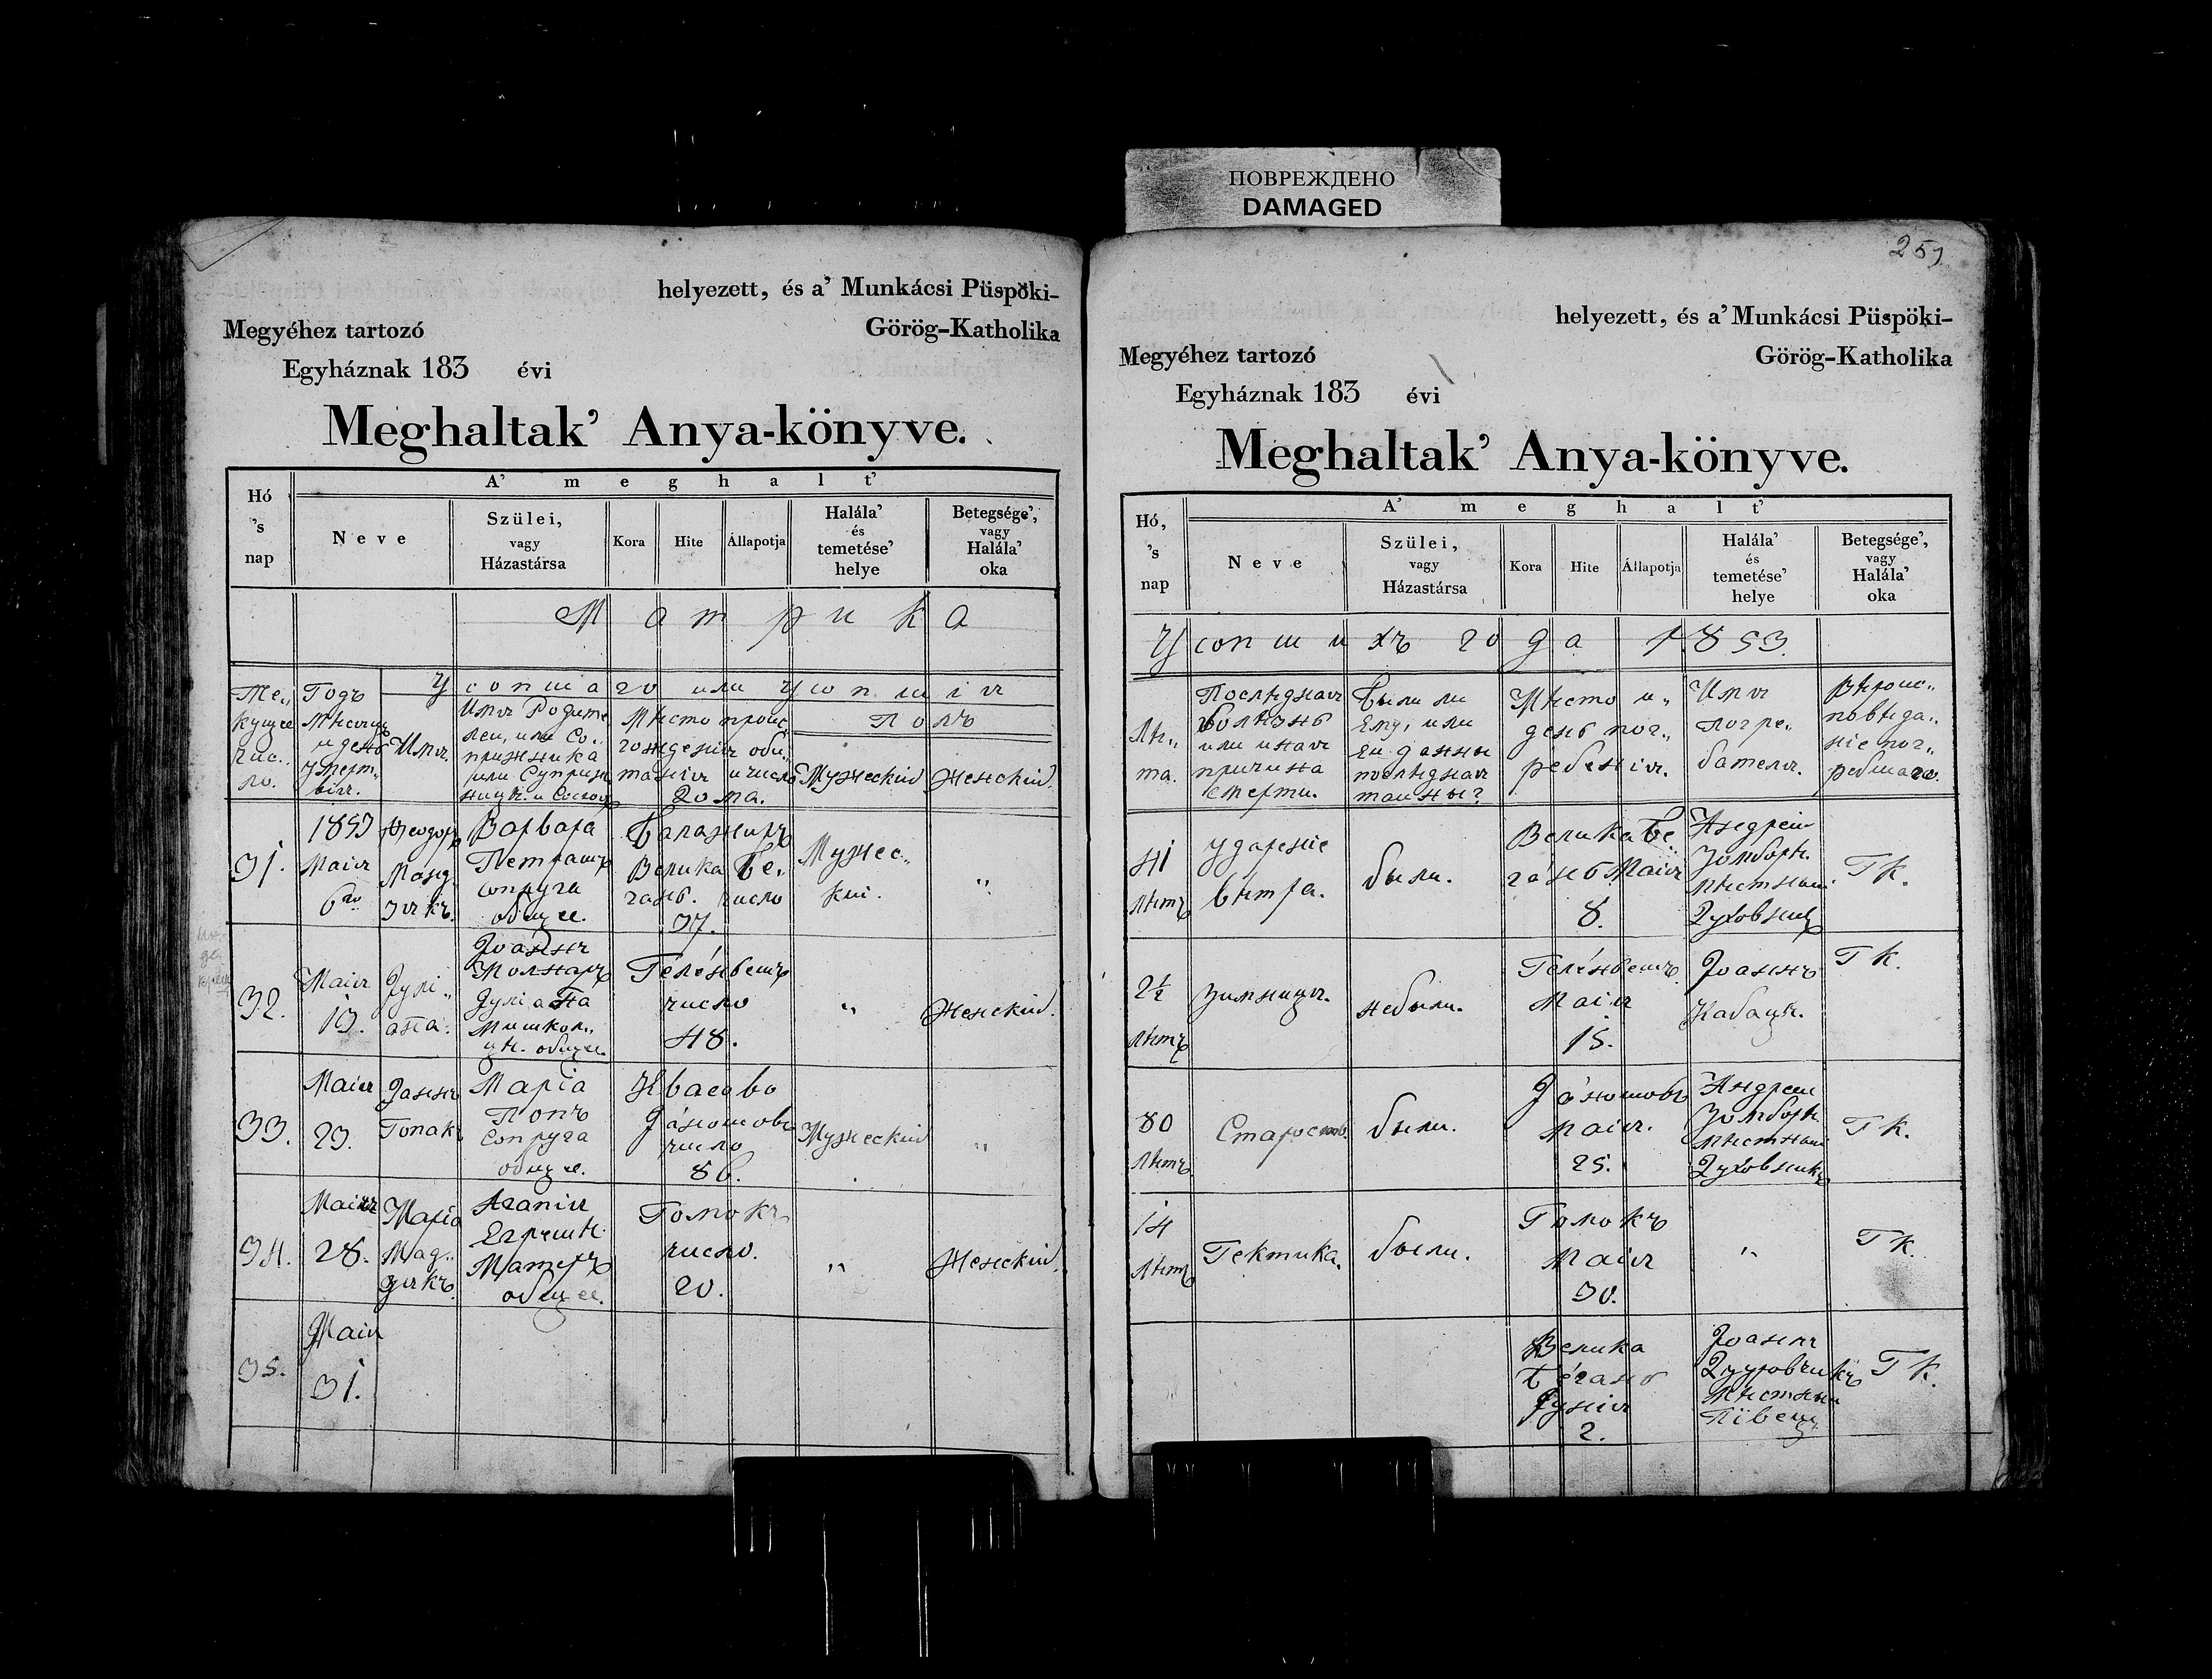 ПОВРЕЖДЕНО
DAMAGED
helyezett, és a’ Munkácsi Püspöki-
Megyéhez tartozó Görög-Katholika
Egyháznak 183 évi
Meghaltak’ Anya-könyve.
A’ meghalt’
Hó
’s
nap
Neve
Szülei,
vagy
Házastársa
Kora
Hite
Állapotja
Halála’
és
temetése’
helye
Betegsége’,
vagy
Halála’
oka
Матрика
Усопшаго или Усопшія
Те„
кущее
чис„
ло.
Годъ
Мѣсяцъ
и день
умерт„
вія.
Имя.
Имя Родите
лей, или Со„
пружника
или Супруж
ницы. и Сословіе
Мѣсто проис„
гожденія оби„
танія и число
дома.
Полъ
Мужескій
Женскій.
31.
1853
Маія
6го
Ѳеодоръ
Манд
зякъ.
Варвара
Петрашъ
сопруга
общее.
Баланиръ
Велика Бе„
гань. число
37.
Мужес„
кій.
„
32.
Маія
13.
Јулі„
анна.
Јоаннъ
Молнаръ
Јуліанна
Мишкол„
цѣ. общее.
Гелѣнѣешъ
число
48.
„
Женскій.
33.
Маія
23.
Јаннъ
Гопакъ
Маріа
Попъ
Сопруга
общее.
Квасово
Јаношовъ
число
86.
Мужескій
„
34.
Маія
28.
Маріа
Мад„
дякъ.
Агапія
Егрешѣ
Матерь
общее.
Голокъ
число.
20.
„
Женскій.
35.
Маія
31.
257.
helyezett, és a’ Munkácsi Püspöki-
Megyéhez tartozó Görög-Katholika
Egyháznak 183 évi
Meghaltak’ Anya-könyve.
A’ meghalt’
Hó,
’s
nap
Neve
Szülei,
vagy
Házastársa
Kora
Hite
Állapotja
Halála’
és
temetése’
helye
Betegsége’,
vagy
Halála’
oka
Усопшихъ года 1853.
Лѣ„
та.
Послѣдная
болѣзнь
или иная
причина
смерти.
Были ли
Ему, или
Ей данны
послѣдная
тайны?
Мѣсто и„
день пог„
ребенія.
Имя
погре„
бателя.
Вѣроис„
повѣда„
ніе пог„
ребшаго.
41
лѣтъ
ударенie
вѣтра.
были.
Велика Бе„
гань Маія
8.
Андрей
Зомборѣ.
мѣстный
Духовникъ
ГК.
2½
лѣтъ
зимница.
небыли.
Маія
15.
Јоаннъ
Кабацѣ.
ГК.
80
лѣтъ
Старость.
были.
Јаношовъ
Маія.
25.
Андрей
Зомборѣ.
мѣстный
Духовникъ
ГК.
14
лѣтъ
Гектика.
были.
Голокъ
Маія
30.
„
ГК.
Велика
Бегань
Јунія
2.
Јоаннъ
мѣстный
Пѣвецъ
ГК.